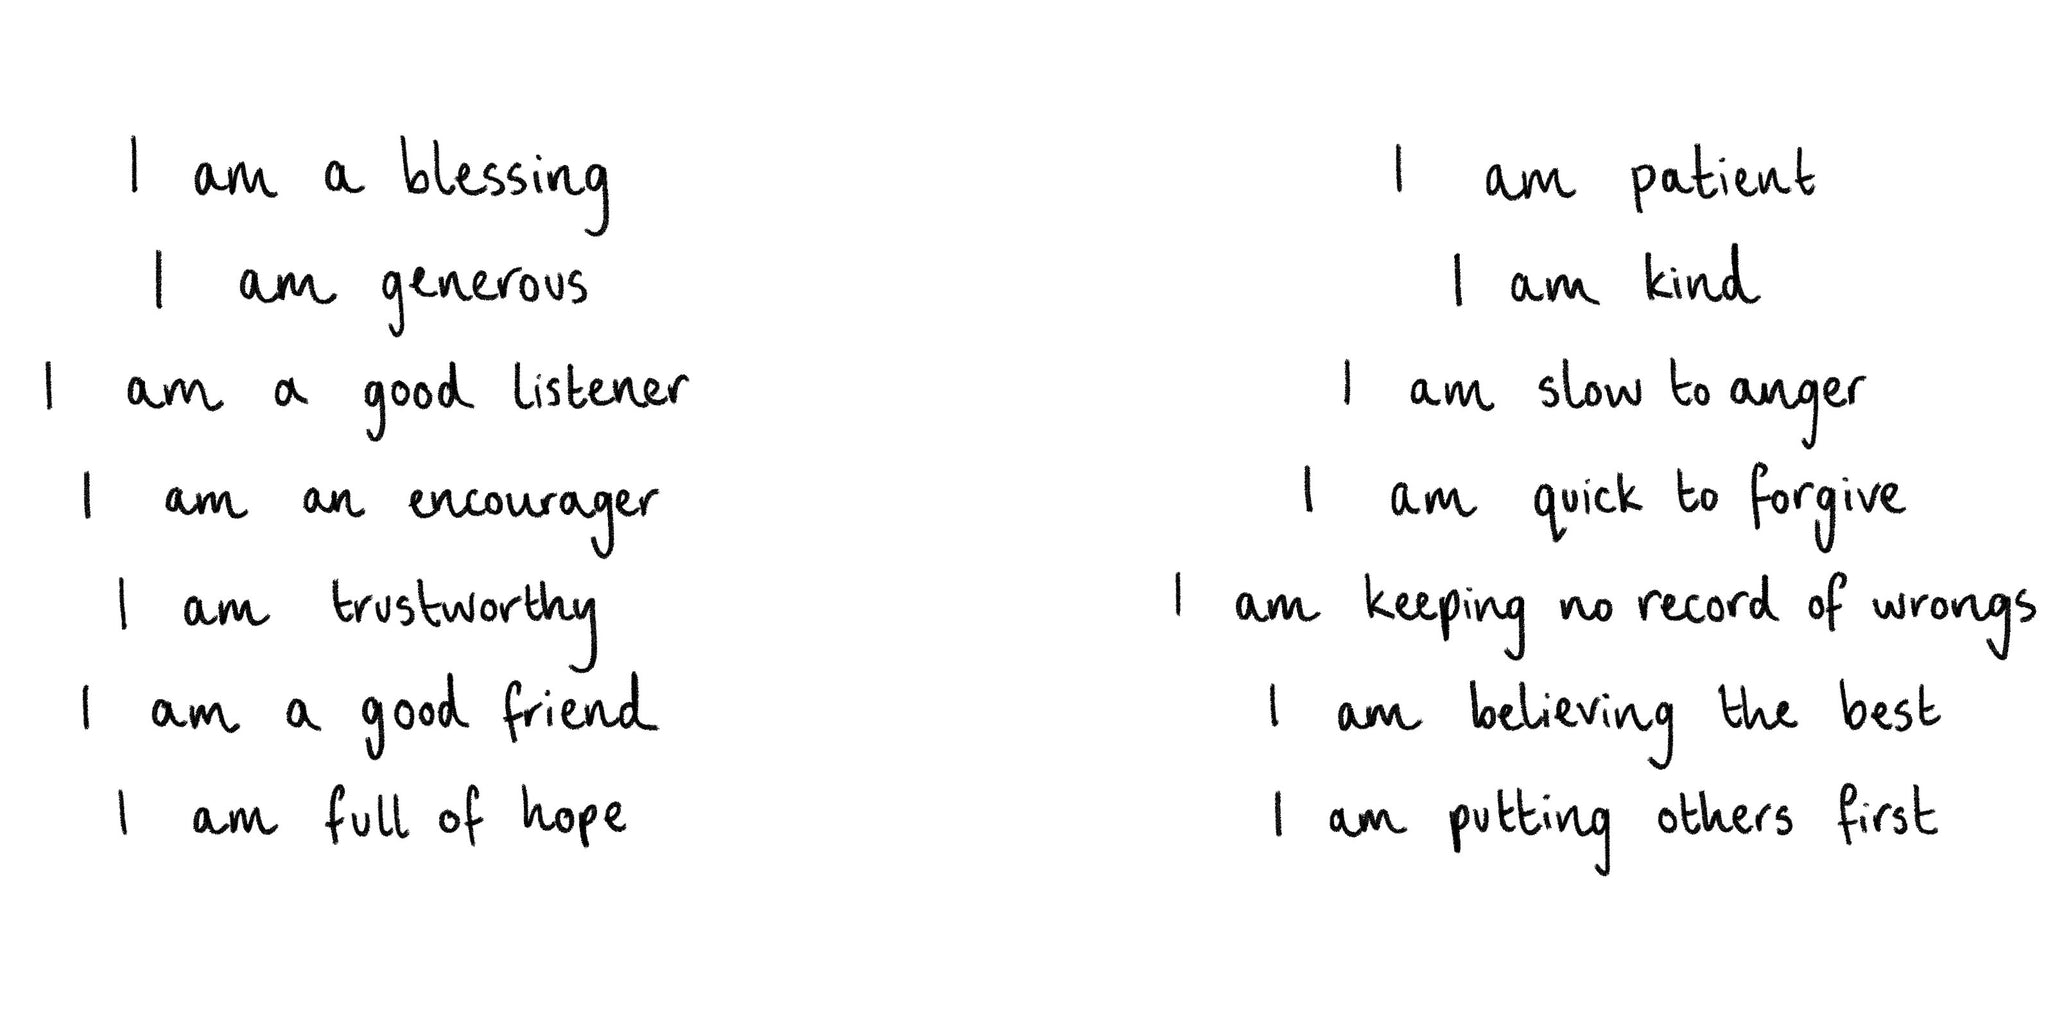 I am a blessing
I am generous
I am a good listener
I am an encourager
I am trustworthy
I am a good friend
I am full of hope
I am patient
I am kind
I am slow to anger
I am quick to forgive
I am keeping no record of wrongs
I am believing the best
I am putting others first